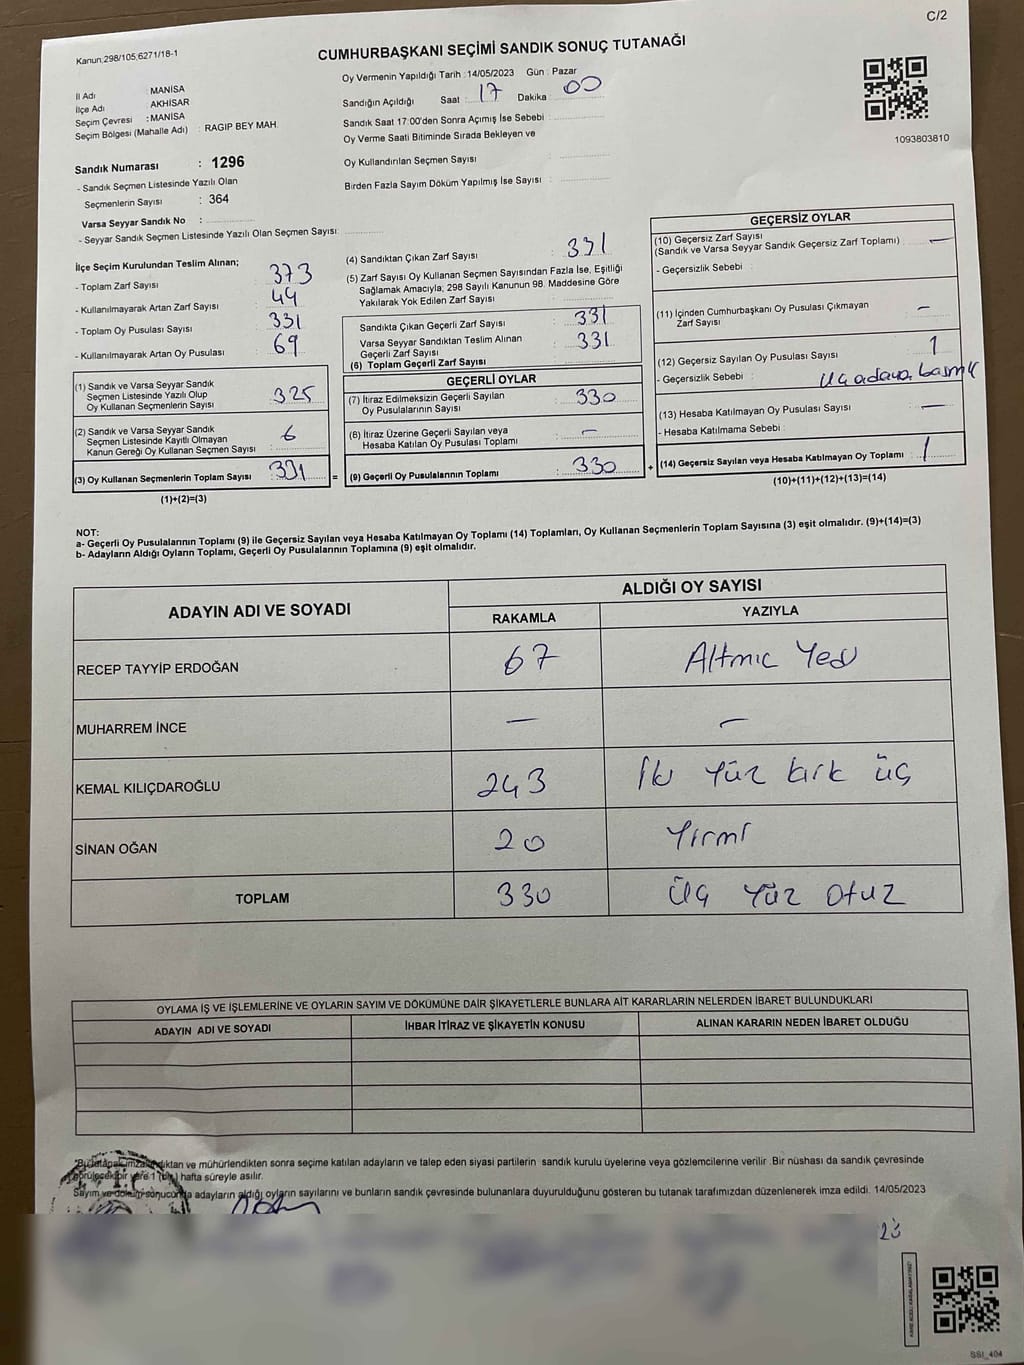 C/2
Kanun:298/105;6271/18-1
CUMHURBAŞKANI SEÇİMİ SANDIK SONUÇ TUTANAĞI
İl Adı : MANİSA
İlçe Adı : AKHİSAR
Seçim Çevresi : MANİSA
Seçim Bölgesi (Mahalle Adı) : RAGIP BEY MAH.
Sandık Numarası : 1296
- Sandık Seçmen Listesinde Yazılı Olan
Seçmenlerin Sayısı : 364
Varsa Seyyar Sandık No :
- Seyyar Sandık Seçmen Listesinde Yazılı Olan Seçmen Sayısı:
Oy Vermenin Yapıldığı Tarih :14/05/2023 Gün : Pazar
Sandığın Açıldığı Saat : 17 Dakika : 00
Sandık Saat 17:00'den Sonra Açımış İse Sebebi :
Oy Verme Saati Bitiminde Sırada Bekleyen ve
Oy Kullandırılan Seçmen Sayısı :
Birden Fazla Sayım Döküm Yapılmış İse Sayısı :
1093803810
İlçe Seçim Kurulundan Teslim Alınan;
- Toplam Zarf Sayısı : 373
- Kullanılmayarak Artan Zarf Sayısı : 44
- Toplam Oy Pusulası Sayısı : 331
- Kullanılmayarak Artan Oy Pusulası : 69
(1) Sandık ve Varsa Seyyar Sandık
Seçmen Listesinde Yazılı Olup
Oy Kullanan Seçmenlerin Sayısı : 325
(2) Sandık ve Varsa Seyyar Sandık
Seçmen Listesinde Kayıtlı Olmayan
Kanun Gereği Oy Kullanan Seçmen Sayısı : 6
(3) Oy Kullanan Seçmenlerin Toplam Sayısı : 331 =
(1)+(2)=(3)
(4) Sandıktan Çıkan Zarf Sayısı : 331
(5) Zarf Sayısı Oy Kullanan Seçmen Sayısından Fazla İse, Eşitliği
Sağlamak Amacıyla; 298 Sayılı Kanunun 98. Maddesine Göre
Yakılarak Yok Edilen Zarf Sayısı :
Sandıkta Çıkan Geçerli Zarf Sayısı : 331
Varsa Seyyar Sandıktan Teslim Alınan
Geçerli Zarf Sayısı : 331
(6) Toplam Geçerli Zarf Sayısı :
GEÇERLİ OYLAR
(7) İtiraz Edilmeksizin Geçerli Sayılan
Oy Pusulalarının Sayısı : 330
(8) İtiraz Üzerine Geçerli Sayılan veya
Hesaba Katılan Oy Pusulası Toplamı : —
(9) Geçerli Oy Pusulalarının Toplamı : 330 +
GEÇERSİZ OYLAR
(10) Geçersiz Zarf Sayısı
(Sandık ve Varsa Seyyar Sandık Geçersiz Zarf Toplamı) : —
- Geçersizlik Sebebi :
(11) İçinden Cumhurbaşkanı Oy Pusulası Çıkmayan
Zarf Sayısı : —
(12) Geçersiz Sayılan Oy Pusulası Sayısı : 1
- Geçersizlik Sebebi : üç adaya
(13) Hesaba Katılmayan Oy Pusulası Sayısı : —
- Hesaba Katılmama Sebebi :
(14) Geçersiz Sayılan veya Hesaba Katılmayan Oy Toplamı : 1
(10)+(11)+(12)+(13)=(14)
NOT:
a- Geçerli Oy Pusulalarının Toplamı (9) ile Geçersiz Sayılan veya Hesaba Katılmayan Oy Toplamı (14) Toplamları, Oy Kullanan Seçmenlerin Toplam Sayısına (3) eşit olmalıdır. (9)+(14)=(3)
b- Adayların Aldığı Oyların Toplamı, Geçerli Oy Pusulalarının Toplamına (9) eşit olmalıdır.
ADAYIN ADI VE SOYADI
ALDIĞI OY SAYISI
RAKAMLA YAZIYLA
RECEP TAYYİP ERDOĞAN 67 Altmıc Yedi
MUHARREM İNCE — —
KEMAL KILIÇDAROĞLU 243 İki Yüz kırk üç
SİNAN OĞAN 20 Yirmi
TOPLAM 330 Üç Yüz Otuz
OYLAMA İŞ VE İŞLEMLERİNE VE OYLARIN SAYIM VE DÖKÜMÜNE DAİR ŞİKAYETLERLE BUNLARA AİT KARARLARIN NELERDEN İBARET BULUNDUKLARI
ADAYIN ADI VE SOYADI İHBAR İTİRAZ VE ŞİKAYETİN KONUSU ALINAN KARARIN NEDEN İBARET OLDUĞU
ve mühürlendikten sonra seçime katılan adayların ve talep eden siyasi partilerin sandık kurulu üyelerine veya gözlemcilerine verilir .Bir nüshası da sandık çevresinde
hafta süreyle asılır.
Sayım ve döküm sonucunda adayların aldığı oyların sayılarını ve bunların sandık çevresinde bulunanlara duyurulduğunu gösteren bu tutanak tarafımızdan düzenlenerek imza edildi. 14/05/2023
T.C.
23
SSI_404